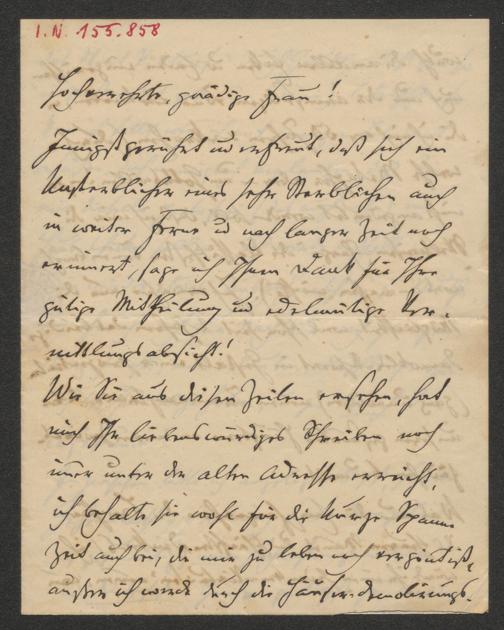 I.N. 155.858
Hochverehrte, gnädige Frau!
Innigst gerührt u erfreut, daß sich ein
Unsterblicher eines sehr Sterblichen auch
in weiter Ferne u nach langer Zeit noch
erinnert, sage ich Ihnen Dank für Ihre
gütige Mittheilung und edelmütige Ver-
mittlungsabsicht!
Wie Sie aus diesen Zeilen ersehen, hat
mich Ihr liebenswürdiges Schreiben noch
imer unter der alten Adresse erreicht,
ich behalte sie wohl für die kurze Spanne
Zeit auch bei, die mir zu leben noch vergönnt ist,
außer ich werde durch die Häuser-demolirungs-